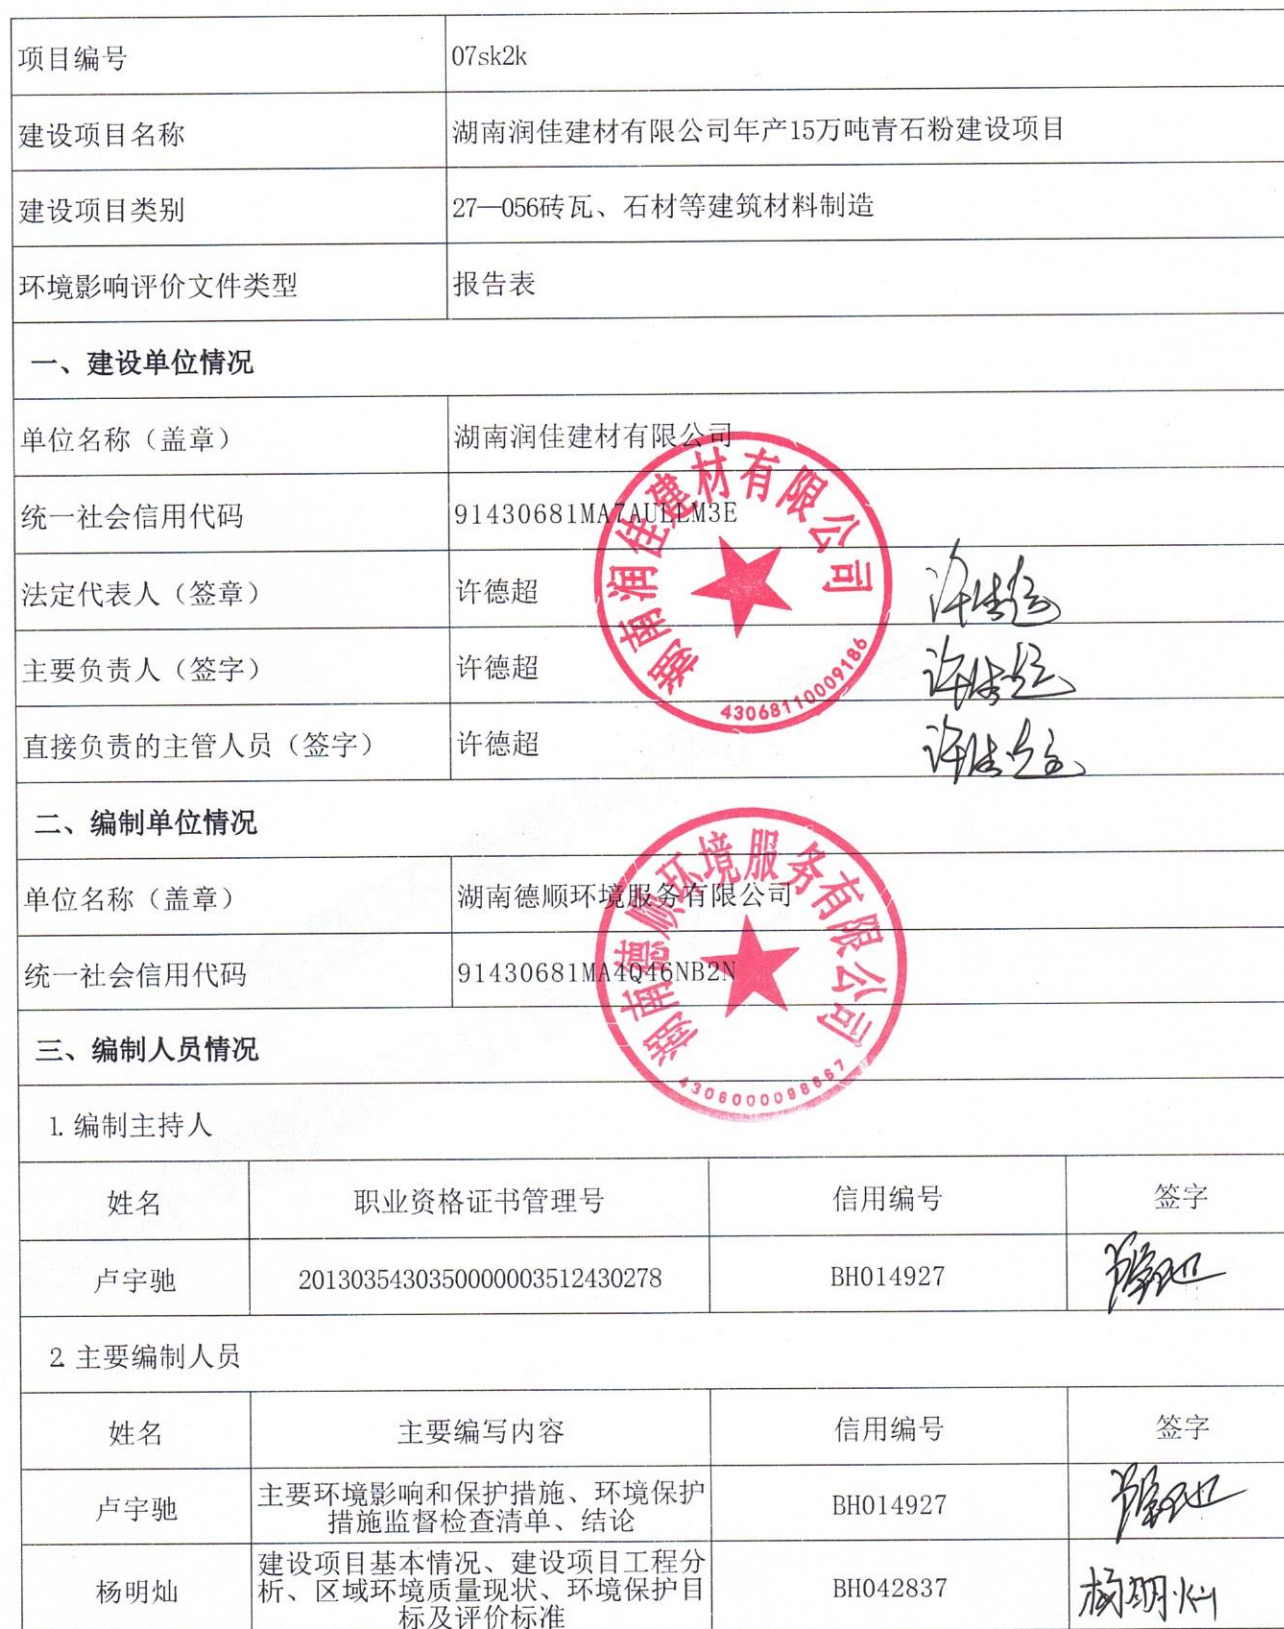 项目编号 07sk2k
建设项目名称 湖南润佳建材有限公司年产15万吨青石粉建设项目
建设项目类别 27—056砖瓦、石材等建筑材料制造
环境影响评价文件类型 报告表
一、建设单位情况
单位名称（盖章） 湖南润佳建材有限公司
统一社会信用代码 91430681MA7AULLM3E
法定代表人（签章） 许德超
主要负责人（签字） 许德超
直接负责的主管人员（签字） 许德超
湖南润佳建材有限公司
43068110009186
二、编制单位情况
单位名称（盖章） 湖南德顺环境服务有限公司
统一社会信用代码 91430681MA4Q46NB2N
湖南德顺环境服务有限公司
三、编制人员情况
1.编制主持人
姓名 职业资格证书管理号 信用编号 签字
卢宇驰 2013035430350000003512430278 BH014927 卢宇驰
2.主要编制人员
姓名 主要编写内容 信用编号 签字
卢宇驰 主要环境影响和保护措施、环境保护
措施监督检查清单、结论 BH014927 卢宇驰
杨明灿 建设项目基本情况、建设项目工程分
析、区域环境质量现状、环境保护目
标及评价标准 BH042837 杨明灿